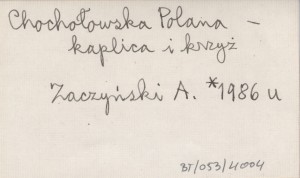 Chochołowska Polana –
kaplica i krzyż
Zaczyński A. *1986 u
BT/053/4004